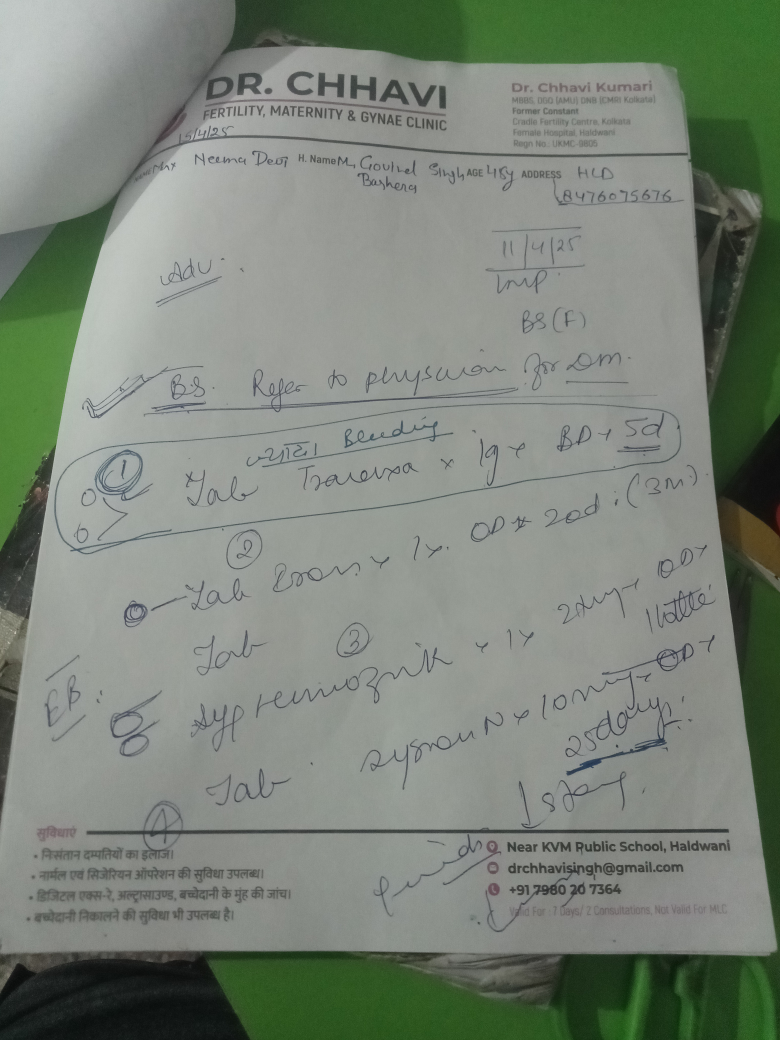 DR. CHHAVI
FERTILITY, MATERNITY & GYNAE CLINIC
Dr. Chhavi Kumari
MBBS, DGO (AMU) DNB (CMRI Kolkata)
Former Constant
Cradle Fertility Centre, Kolkata
Female Hospital, Haldwani
Regn No.: UKMC-9805
15/4/25
Neema Devi H. Name M. Govind Singh AGE 45y ADDRESS HLD
8476075676
Adv.
11/4/25
LMP
BS (F)
BS. Refer to physician for DM.
ज्यादा Bleeding
① Tab x 1g x BD x 5d
②
Tab x 1x OD x 20d. (3m)
Tab ③
Syp x 1x 2 OD x
1 bottle
EB:
④ Tab. N x 10mg x OD x
25 days
सुविधाएं
• निसंतान दम्पतियों का इलाज।
• नार्मल एवं सिजेरियन ऑपरेशन की सुविधा उपलब्ध।
• डिजिटल एक्स-रे, अल्ट्रासाउण्ड, बच्चेदानी के मुंह की जांच।
• बच्चेदानी निकालने की सुविधा भी उपलब्ध है।
Near KVM Public School, Haldwani
drchhavisingh@gmail.com
+91 7980 20 7364
Valid For : 7 Days/ 2 Consultations, Not Valid For MLC